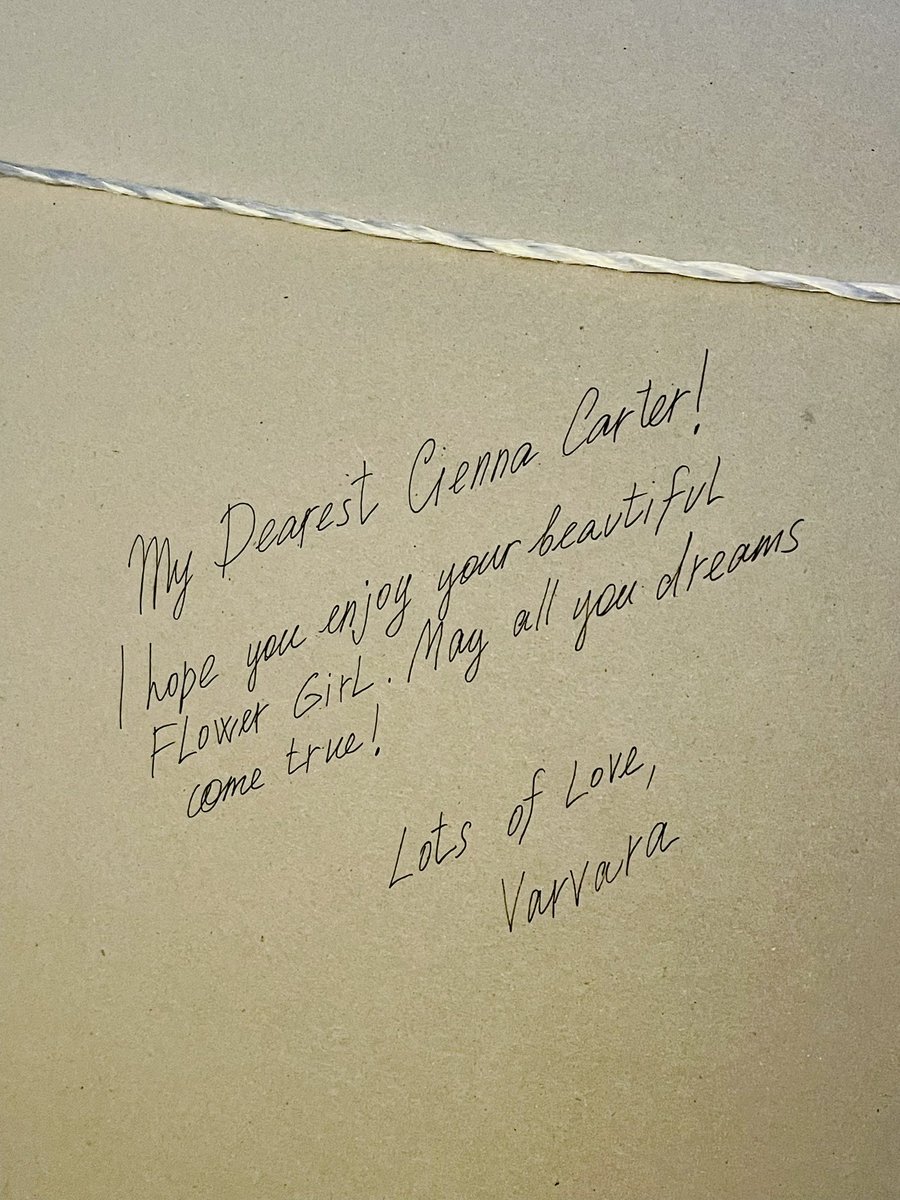 My Dearest Cienna Carter!
I hope you enjoy your beautiful
Flower Girl. May all you dreams
come true!
Lots of Love,
Varvara